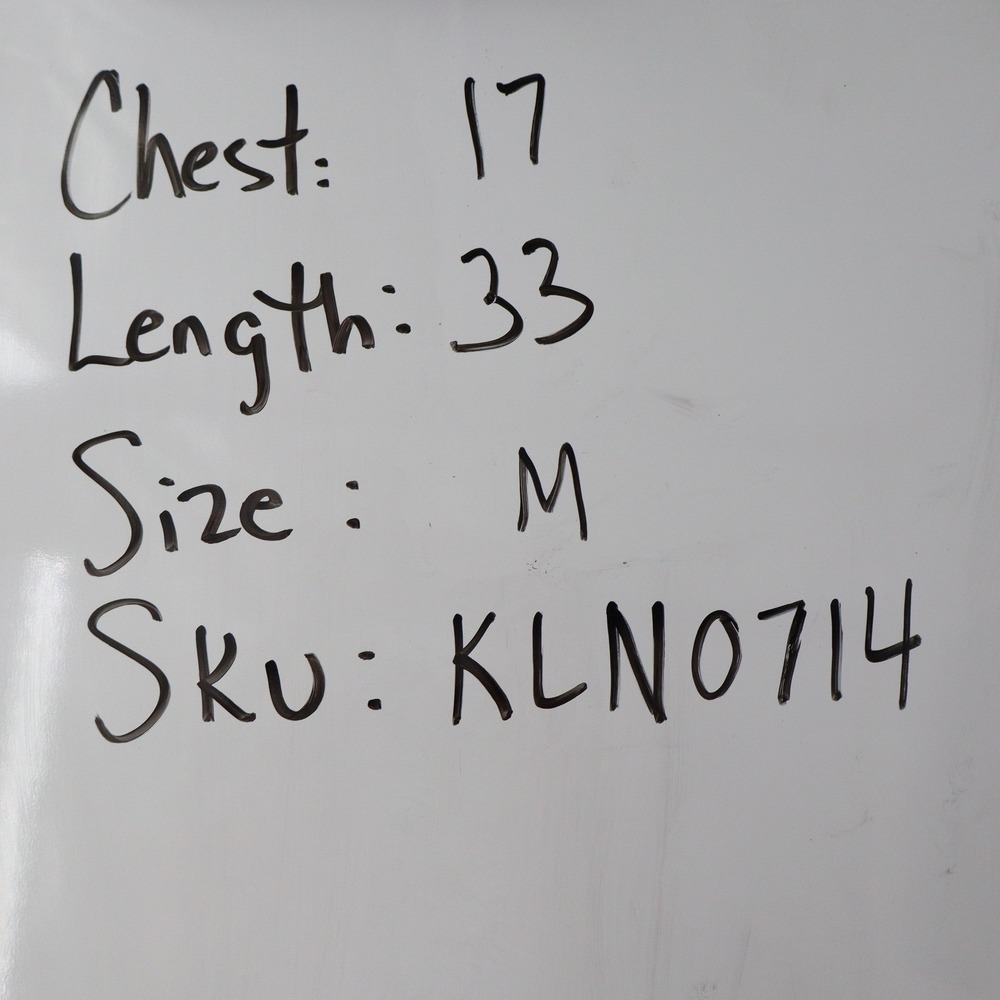 Chest: 17
Length: 33
Size: M
Sku: KLN0714